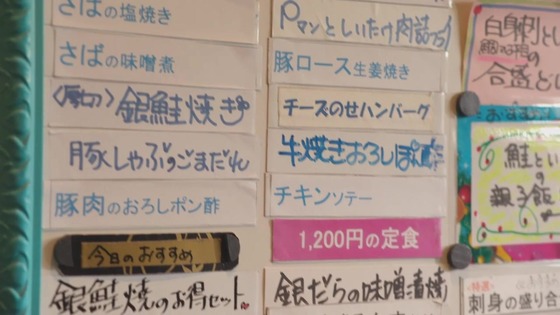 さばの塩焼き
さばの味噌煮
〈厚切〉銀鮭焼き
豚しゃぶのごまだれ
豚肉のおろしポン酢
今日のおすすめ
銀鮭焼のお得セット
Pマンとしいたけ肉詰
豚ロース生姜焼き
チーズのせハンバーグ
牛焼きおろしぽん酢
チキンソテー
1,200円の定食
銀だらの味噌漬焼
白身刺とし
の
合盛と
おすすめ
鮭とし
の
親子飯
特選
刺身の盛り合